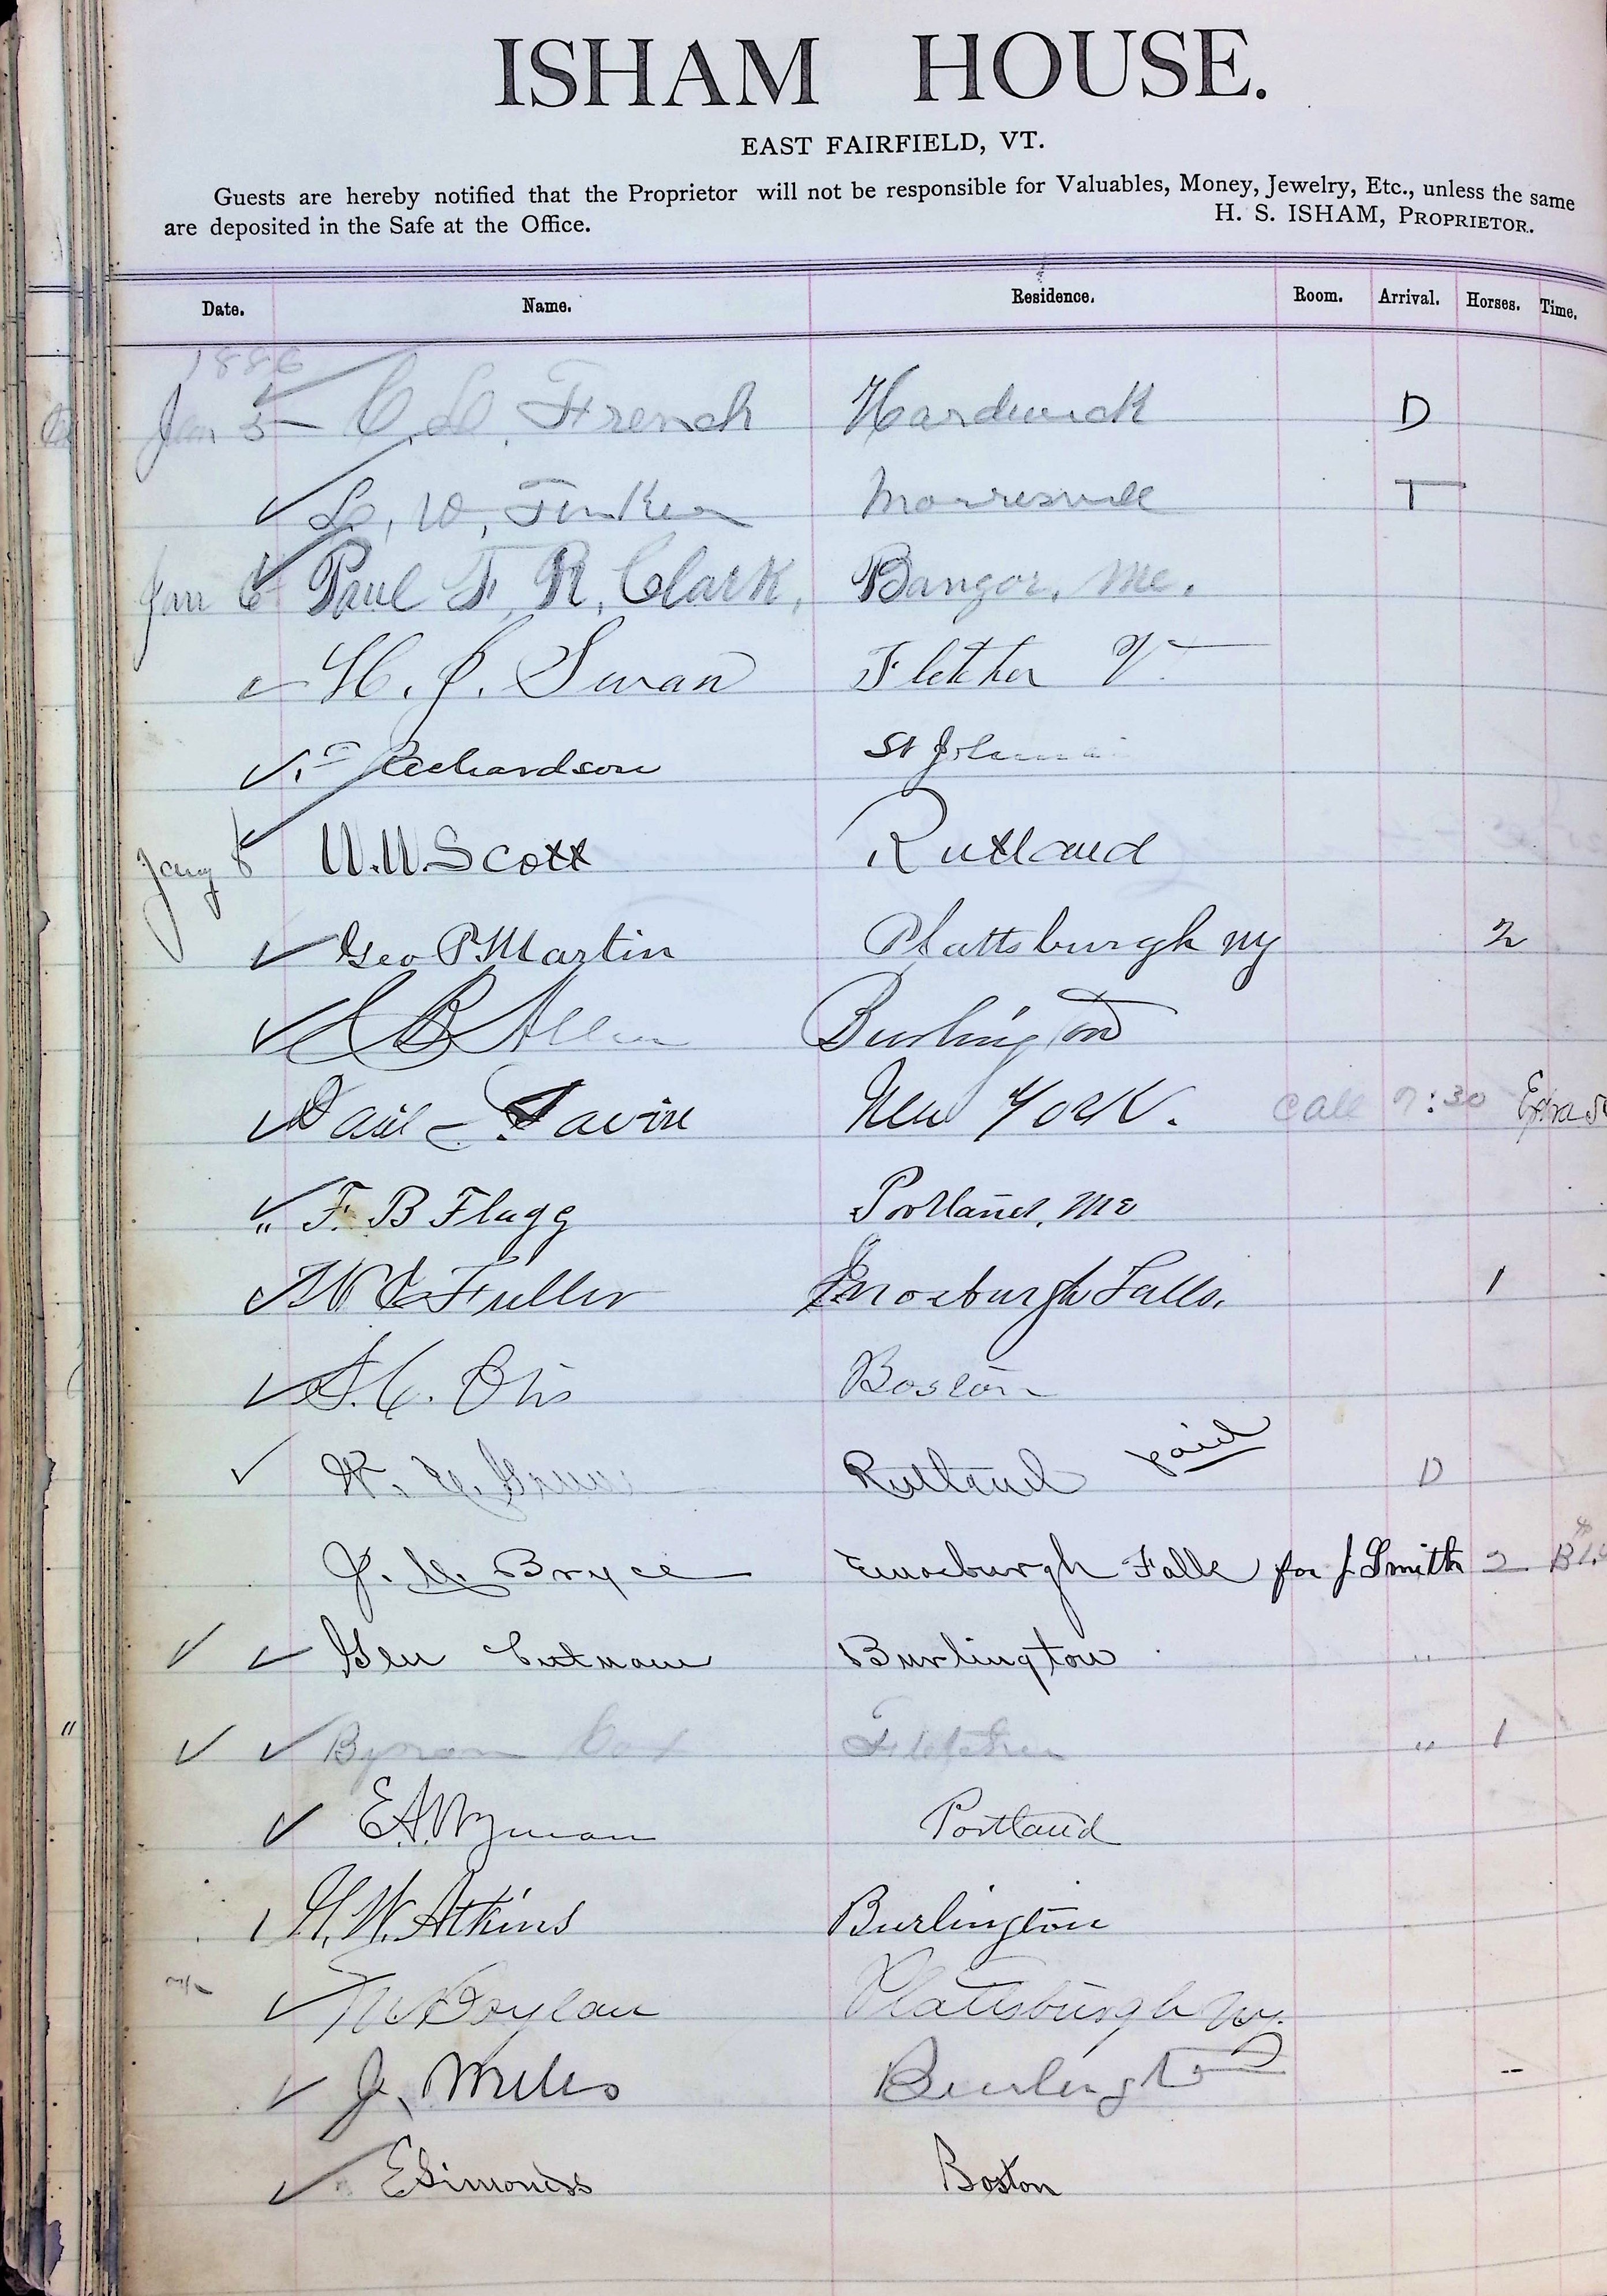 ISHAM HOUSE.
EAST FAIRFIELD, VT.
Guests are hereby notified that the Proprietor will not be responsible for Valuables, Money, Jewelry, Etc., unless the same
are deposited in the Safe at the Office. H. S. ISHAM, PROPRIETOR.
Date. Name. Residence. Room. Arrival. Horses. Time.
1886
Jan 5 C. L. French Hardwick D
L. W. Morresville T
Jan 6 Paul F. R. Clark, Bangor, Me.
H. J. Swan Fletcher Vt
Richardson St Johns
Jany 8 W.W. Scott Rutland
Geo P Martin Plattsburgh NY 2
B Allen Burlington
New York. Call 7:30 Extra
" F. B Flagg Portland, Me
Fuller Enosburgh Falls. 1
S. C. Otis Boston
Rutland paid D
Bryce Enosburgh Falls for J Smith 2
Putnam Burlington "
Byron Fletcher " 1
E.A. Wyman Portland
H. W. Atkins Burlington
Boylan Plattsburgh NY.
J. Miles Burlington
E Simonds Boston